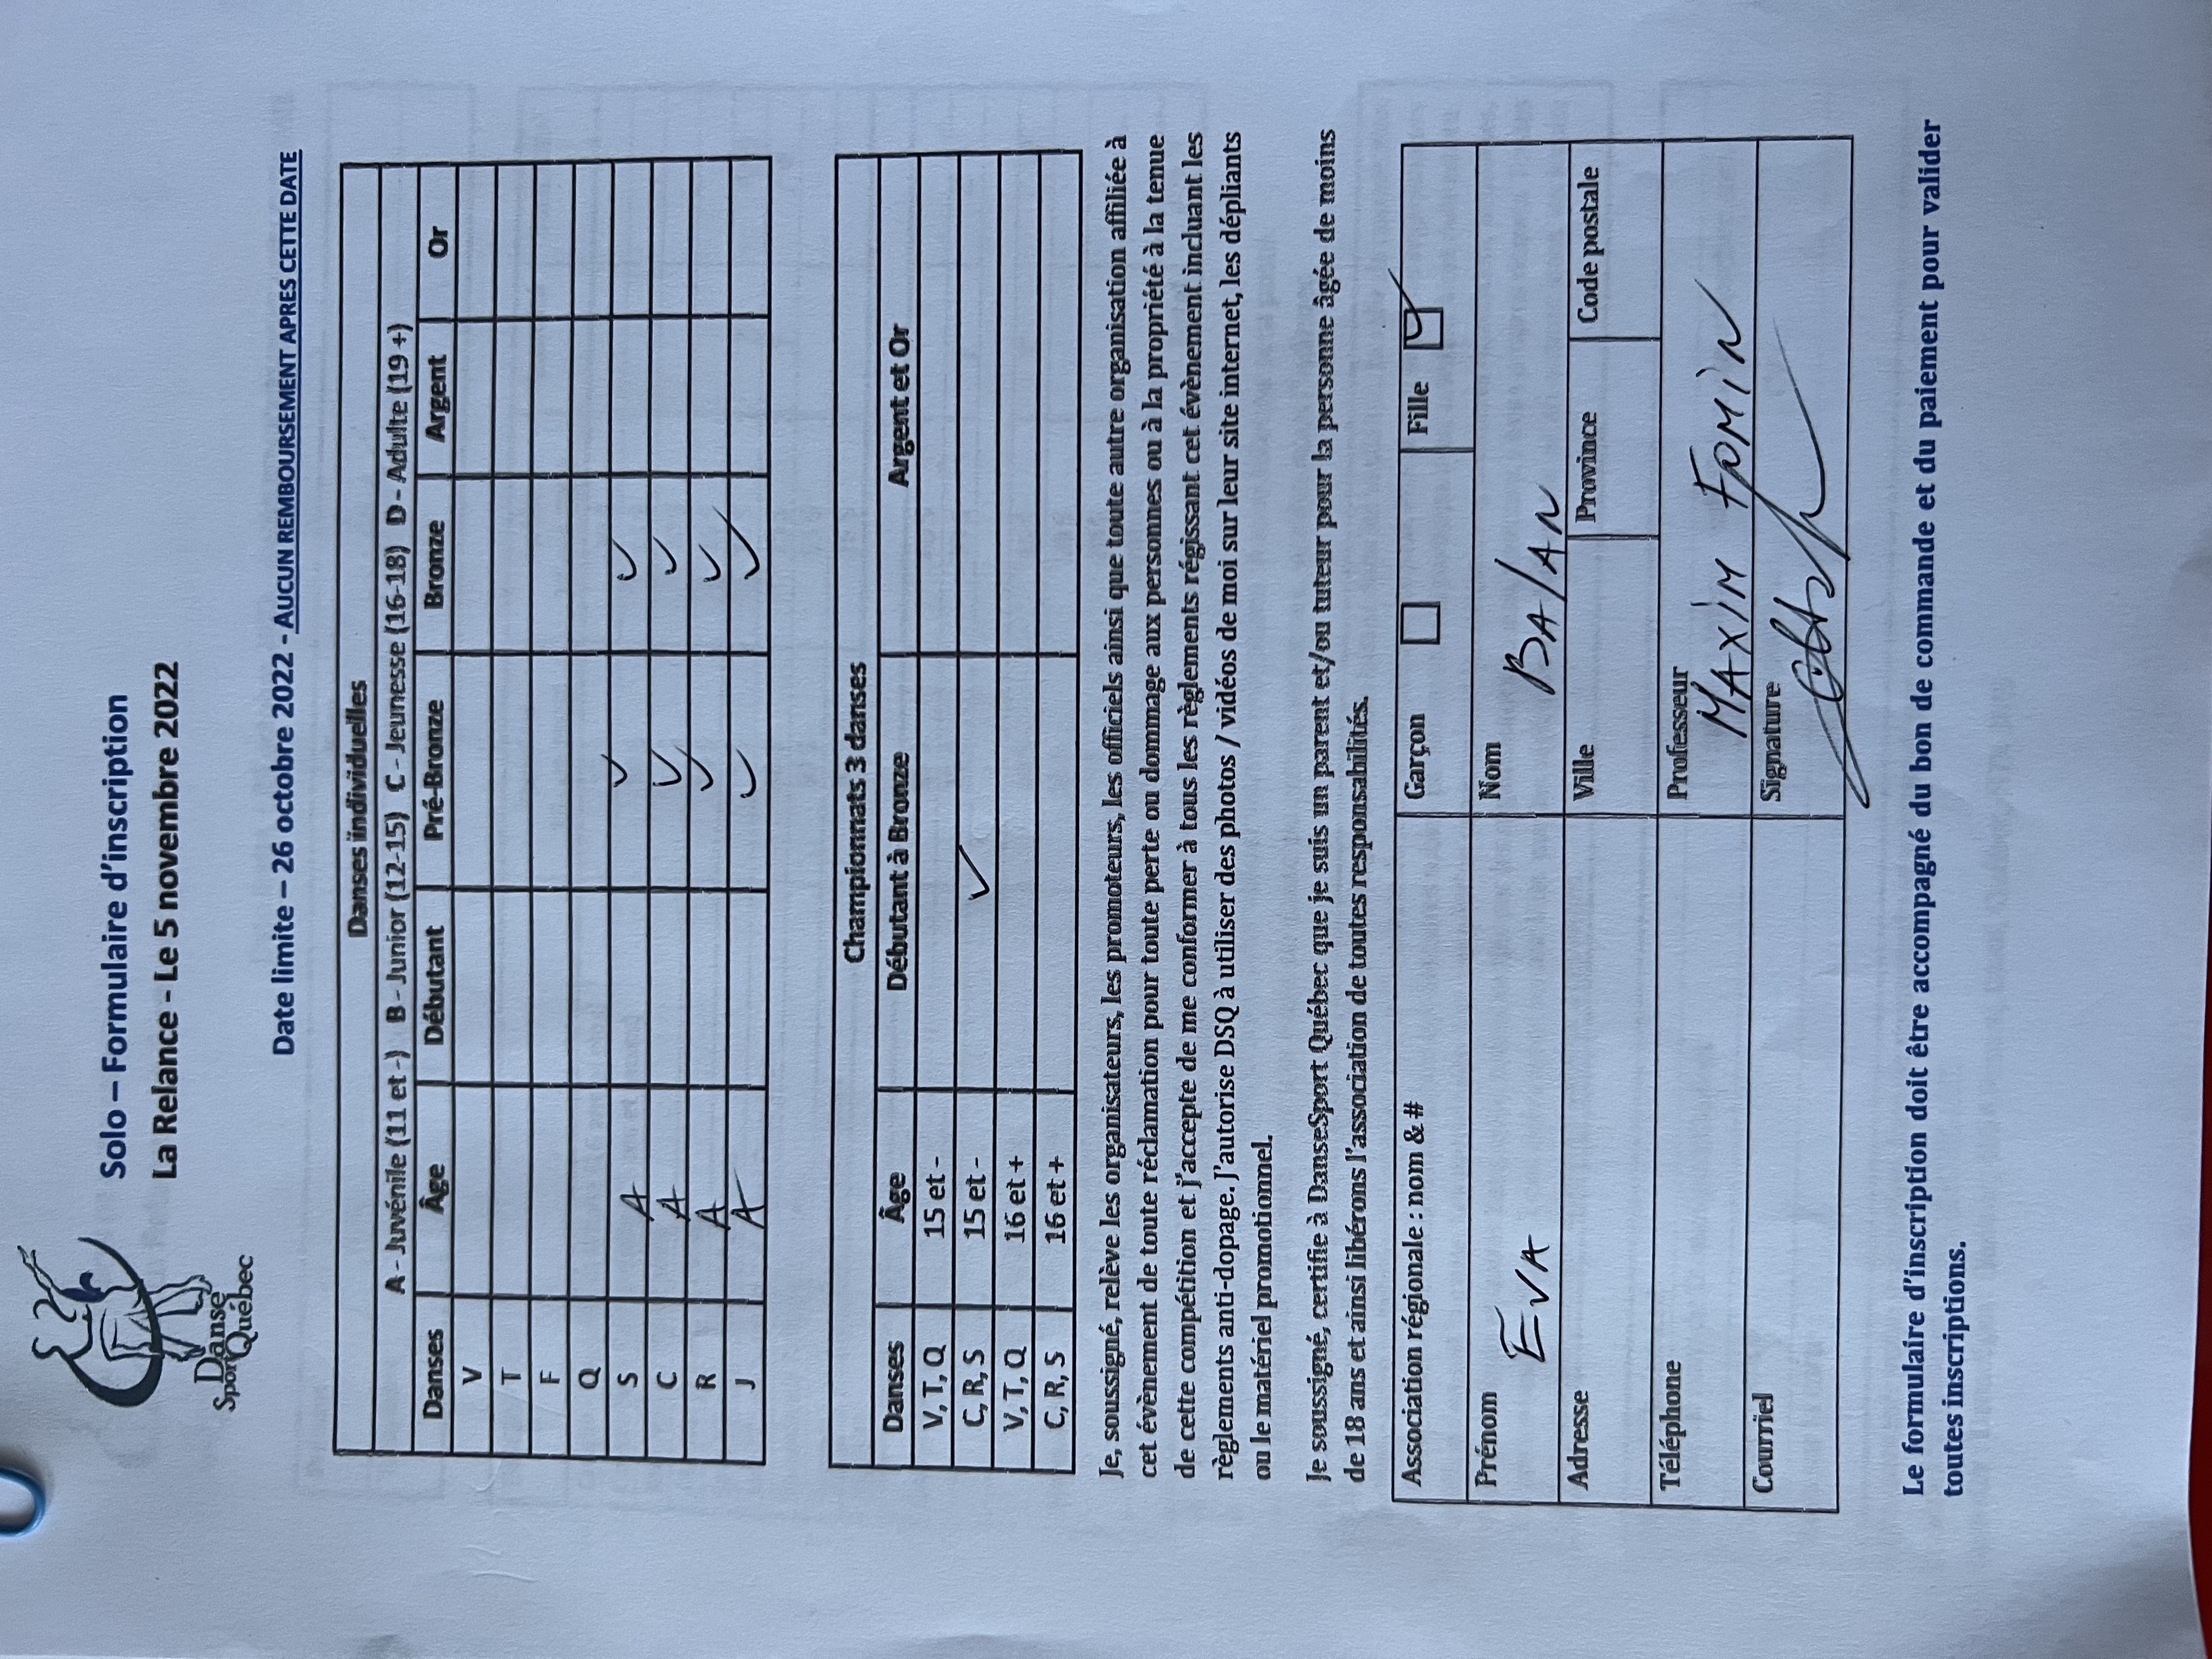 Danse
Sport Québec
Solo – Formulaire d'inscription
La Relance - Le 5 novembre 2022
Date limite – 26 octobre 2022 - AUCUN REMBOURSEMENT APRES CETTE DATE
Danses individuelles
A - Juvénile (11 et -) B - Junior (12-15) C - Jeunesse (16-18) D - Adulte (19 +)
Danses Âge Débutant Pré-Bronze Bronze Argent Or
V
T
F
Q
S A ✓ ✓
C A ✓ ✓
R A ✓ ✓
J A ✓ ✓
Championnats 3 danses
Danses Âge Débutant à Bronze Argent et Or
V, T, Q 15 et -
C, R, S 15 et - ✓
V, T, Q 16 et +
C, R, S 16 et +
Je, soussigné, relève les organisateurs, les promoteurs, les officiels ainsi que toute autre organisation affiliée à
cet évènement de toute réclamation pour toute perte ou dommage aux personnes ou à la propriété à la tenue
de cette compétition et j'accepte de me conformer à tous les règlements régissant cet évènement incluant les
règlements anti-dopage. J'autorise DSQ à utiliser des photos / vidéos de moi sur leur site internet, les dépliants
ou le matériel promotionnel.
Je soussigné, certifie à DanseSport Québec que je suis un parent et/ou tuteur pour la personne âgée de moins
de 18 ans et ainsi libérons l'association de toutes responsabilités.
Association régionale : nom & # Garçon ☐ Fille ☑
Prénom Nom
EVA BAlAN
Adresse Ville Province Code postale
Téléphone Professeur
MAXiM FOMiN
Courriel Signature
Le formulaire d'inscription doit être accompagné du bon de commande et du paiement pour valider
toutes inscriptions.